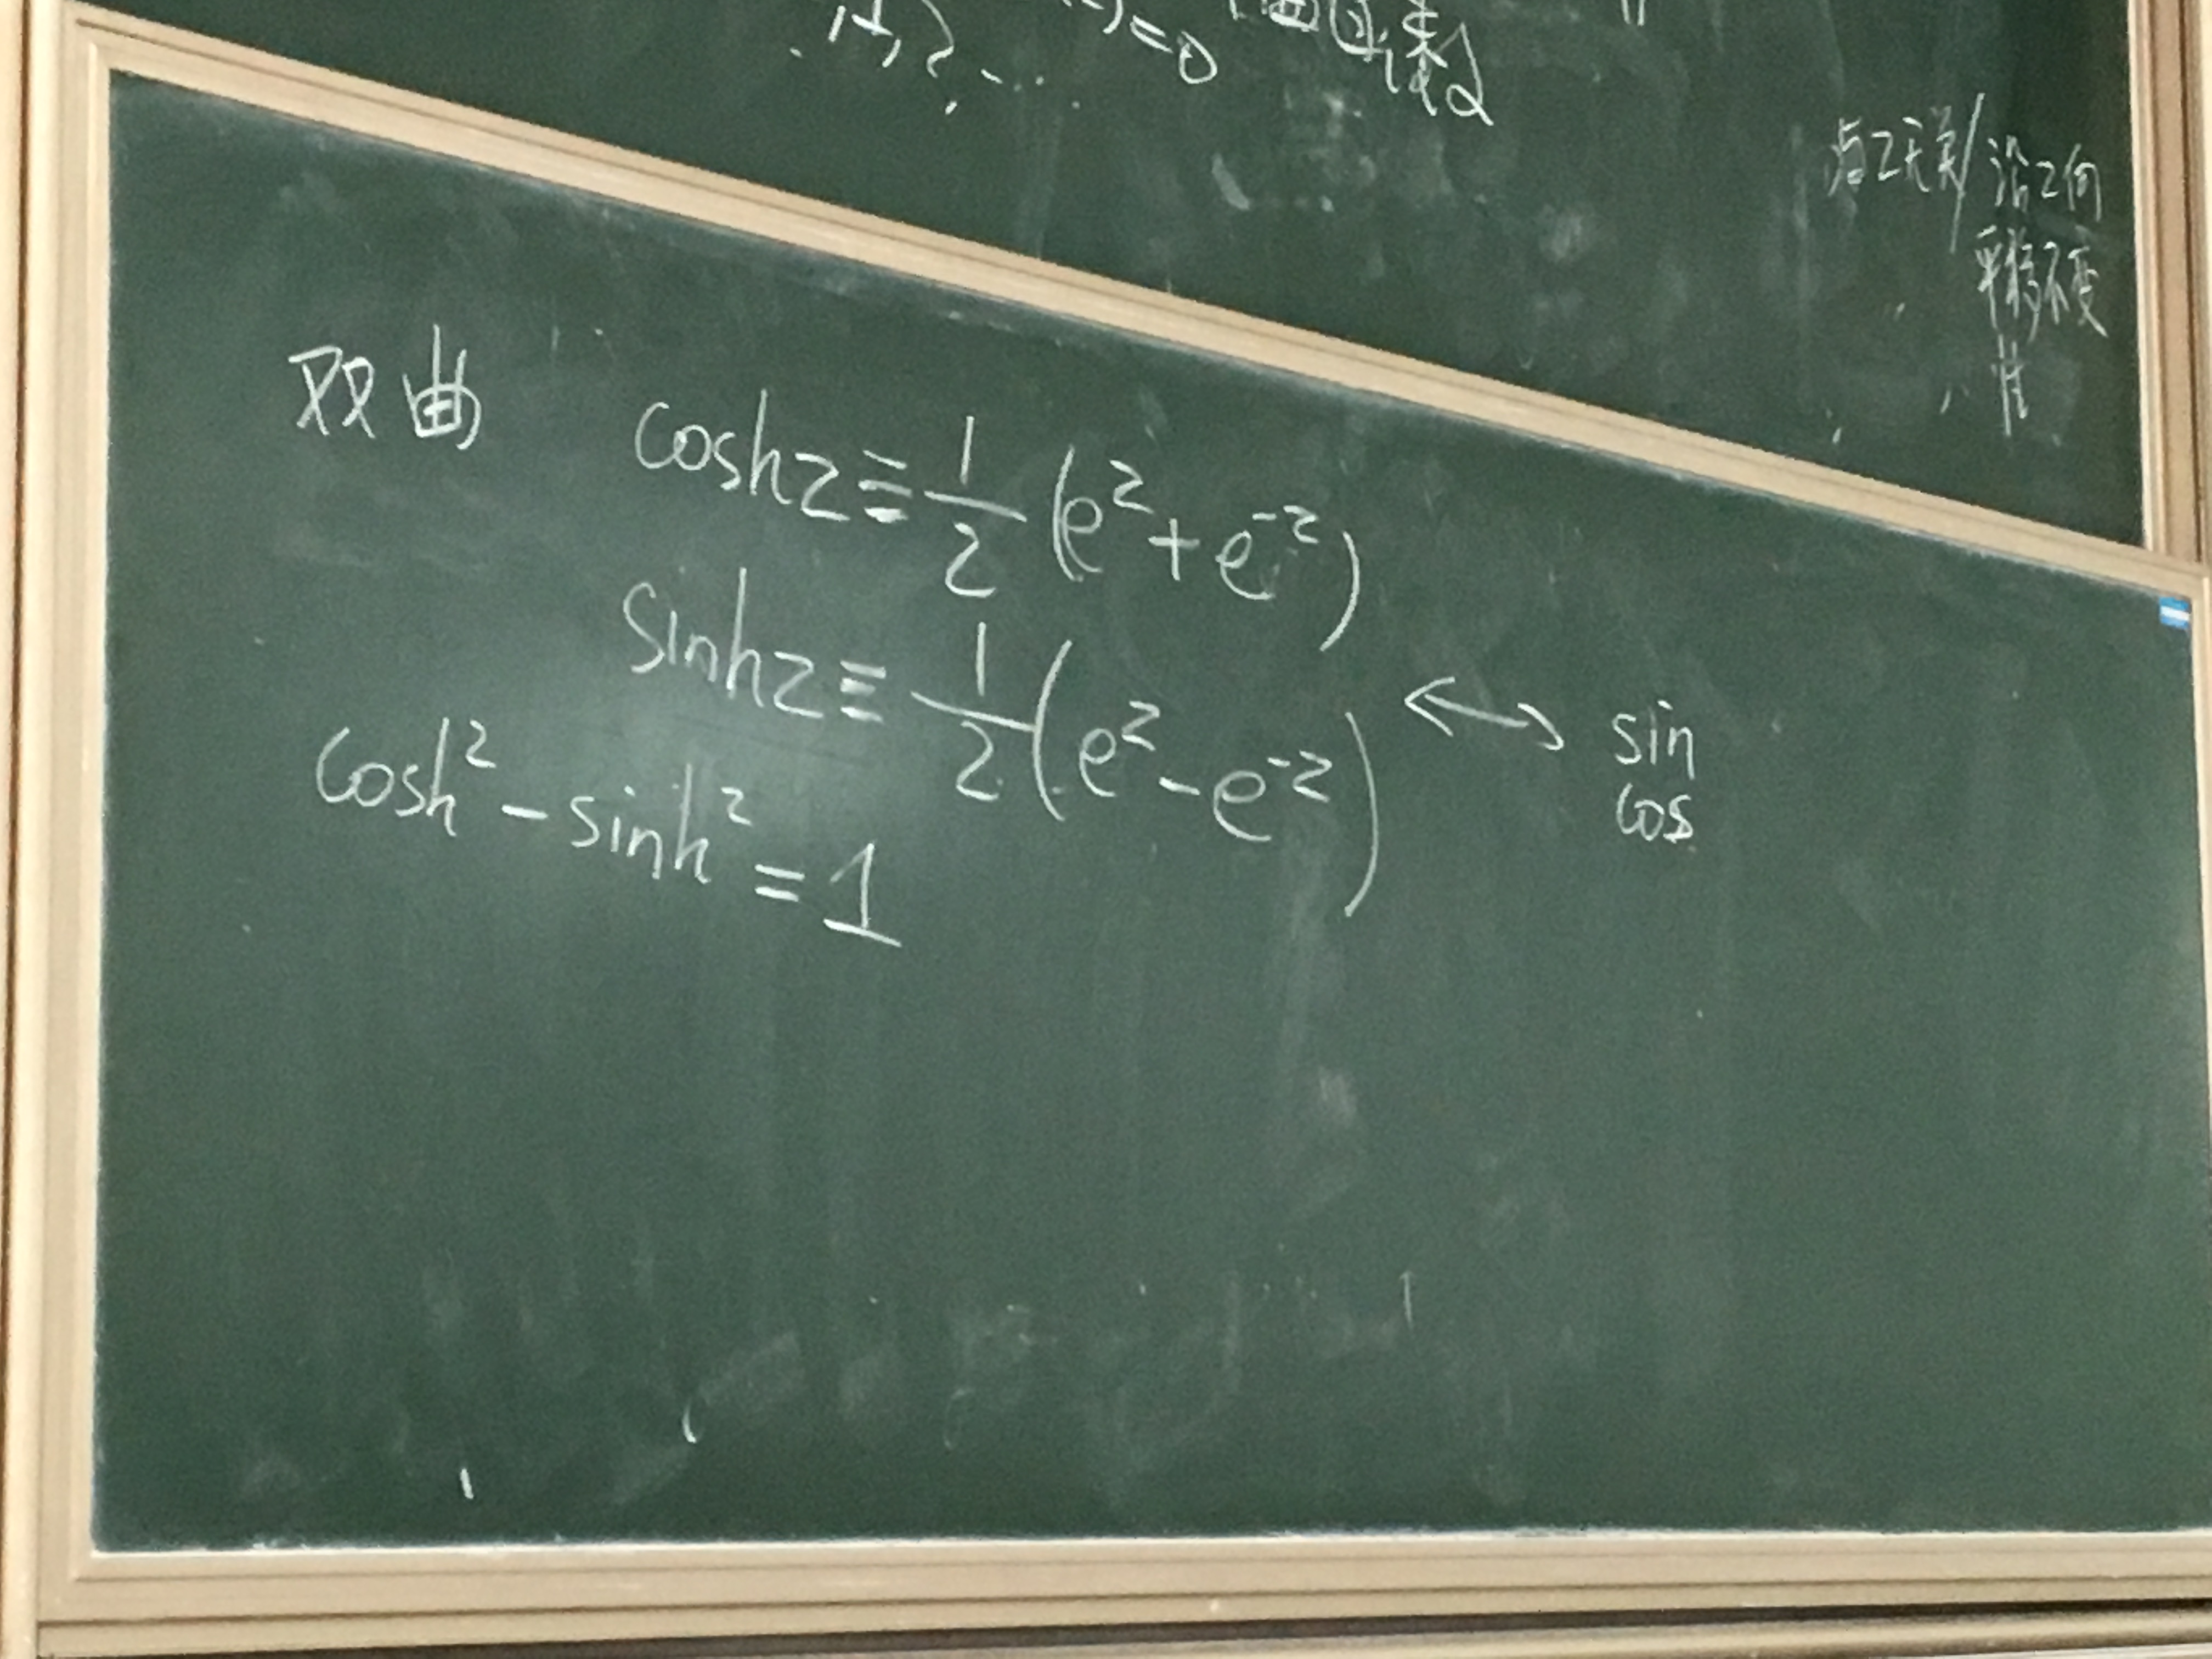 =0 函数
与z无关/沿z向
平移不变
性
双曲 coshz≡1/2(e^z+e^-z)
sinhz≡1/2(e^z-e^-z) ↔ sin
cos
cosh²-sinh²=1